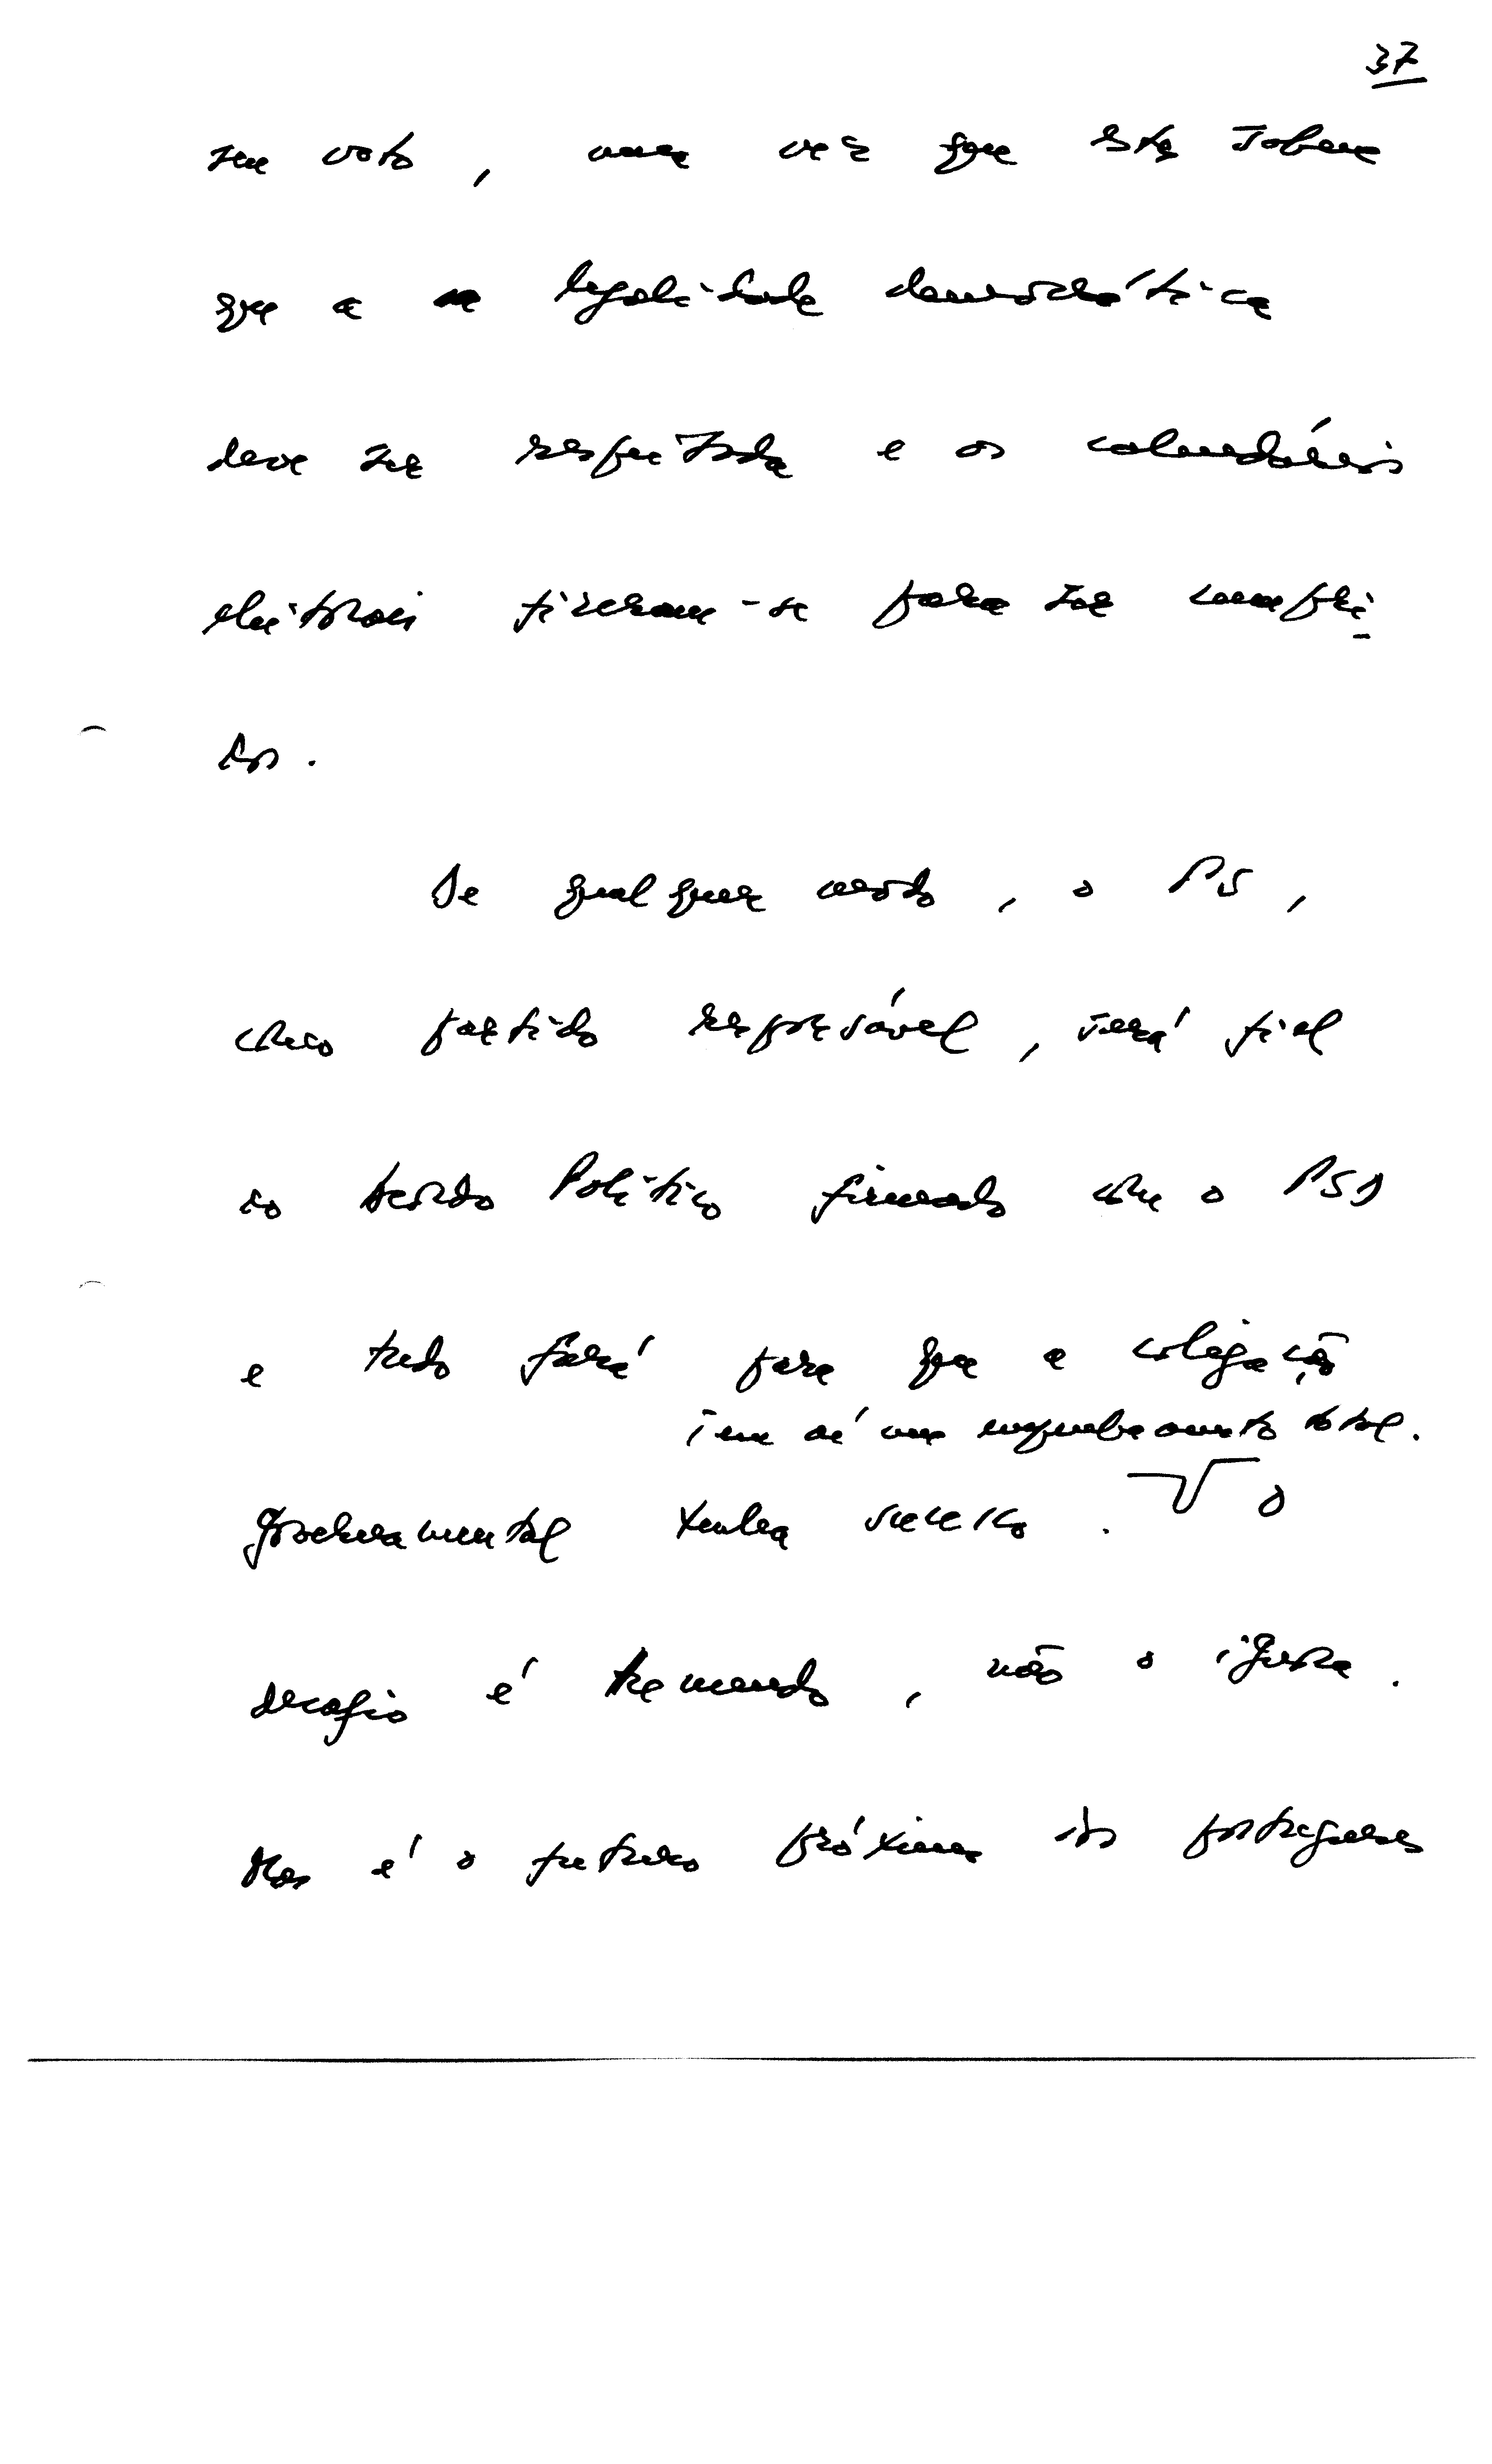 37
seu voto, uma vez que esta sabem
que a legalidade democrática
deve ser respeitada e os calendários
eleitorais fizeram-se para ser cumpri
dos.
De qualquer modo, o PS,
como partido responsável, será fiel
ao Acordo Político firmado com o PSD
e tudo fará para que a coligação
tem aí um empenhamento total.
governamental tenha sucesso. O
desafio é tremendo, não o ignora.
Mas é o futuro próximo dos portugueses